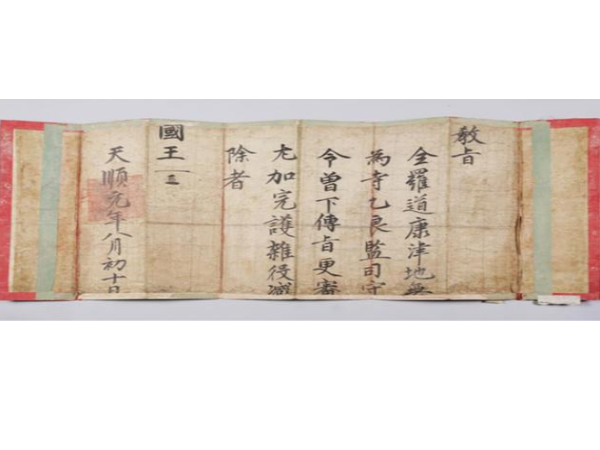 敎旨
全羅道康津地無
爲寺乙良監司守
今曽下傳旨更審
尤加完護雜役減
除者
國王
天順元年八月初十日